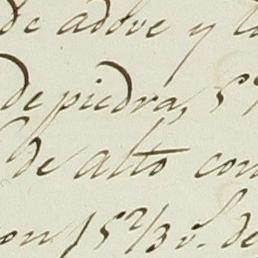 de adove y t
de piedra, 5
de alto con
on 15 2/3 v.s de